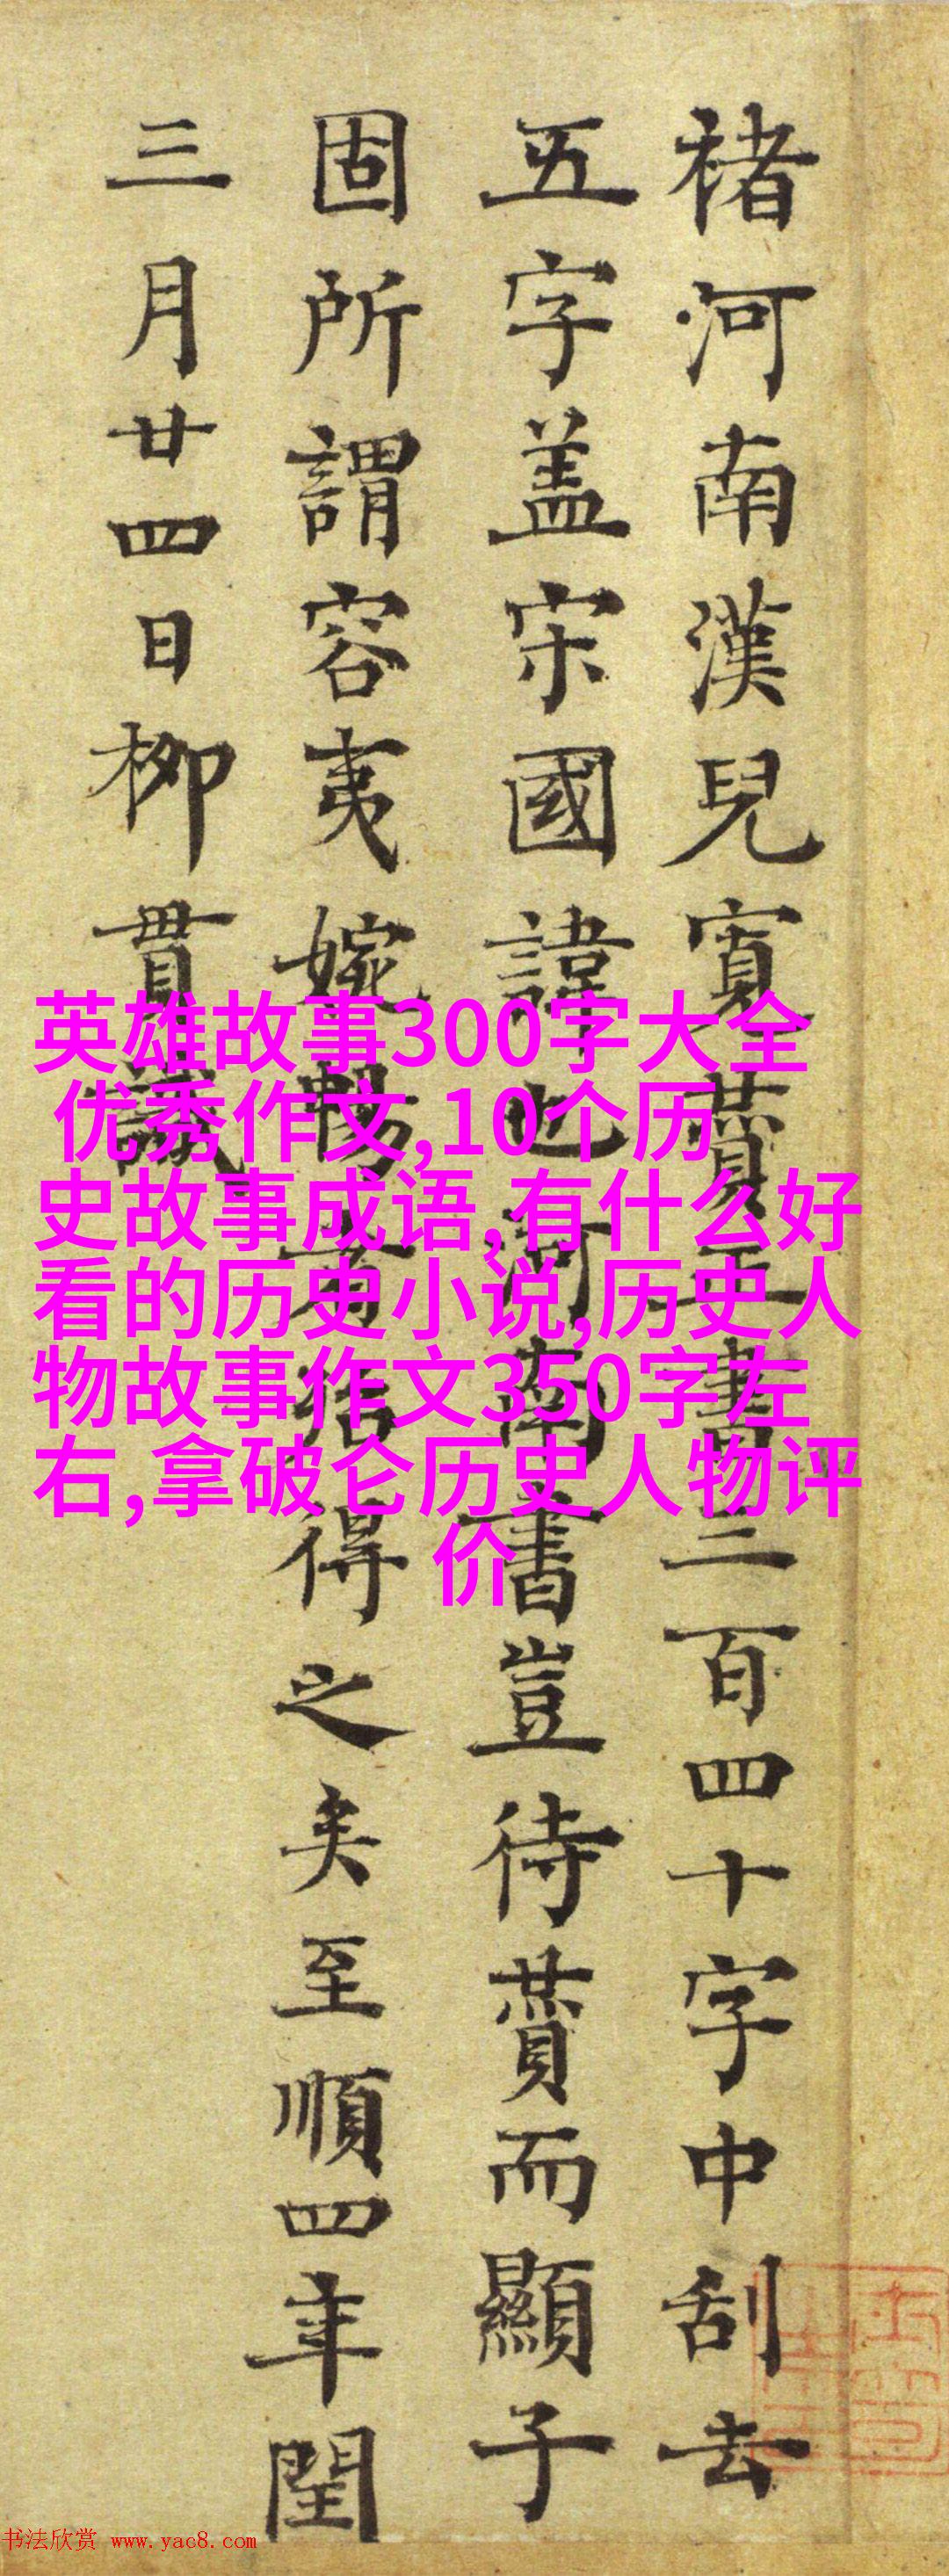 褚河南漢兒寬賛書三百四十字中刮去
五字盖宋國諱也河南書豈待賛而顯子
固所謂容夷婉暢者得之矣至順四年閏
三月廿四日柳貫識
英雄故事300字大全
优秀作文,10个历
史故事成语,有什么好
看的历史小说,历史人
物故事作文350字左
右,拿破仑历史人物评
价
书法欣赏 www.yac8.com